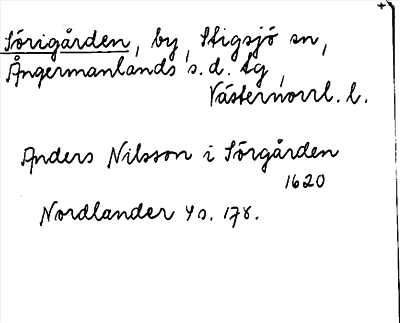 Sörigården, by, Stigsjö sn,
Ångermanlands s.d. tg,
Västernorrl. l.
Anders Nilsson i Sörgården
1620
Nordlander 4 s. 178.